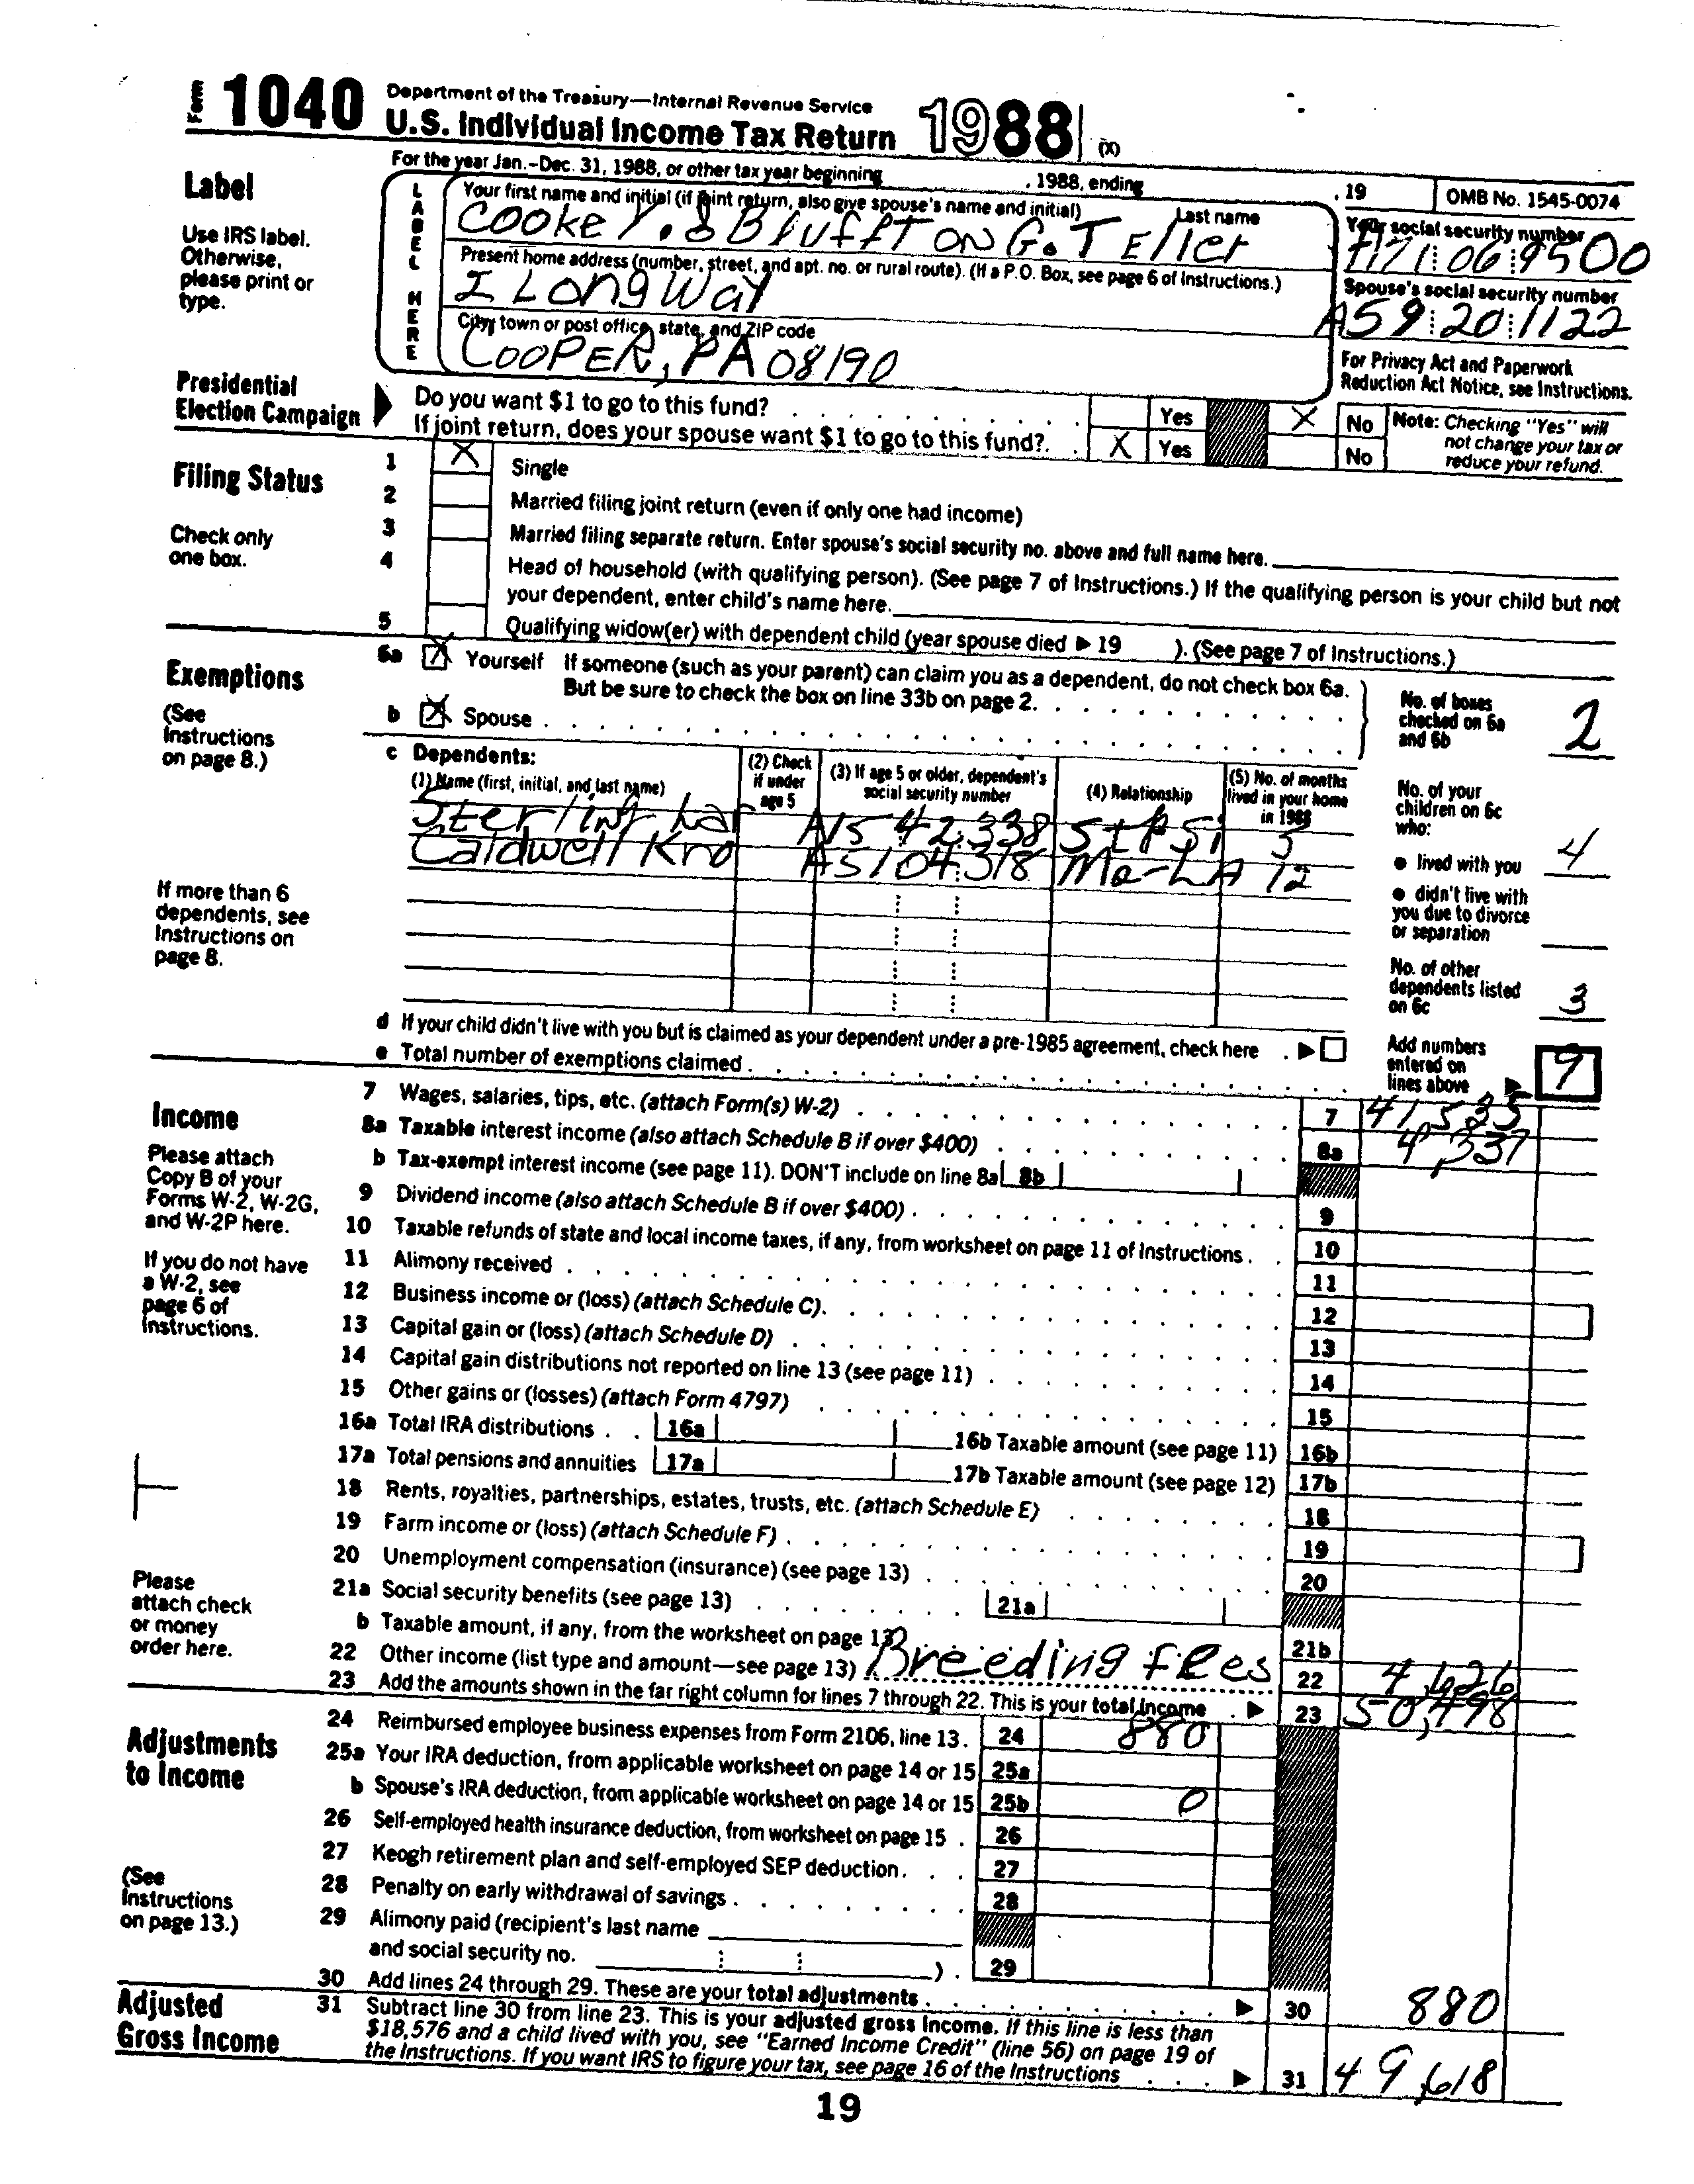 Form 1040 Department of the Treasury—Internal Revenue Service
U.S. Individual Income Tax Return 1988 (X)
For the year Jan.–Dec. 31, 1988, or other tax year beginning , 1988, ending , 19 OMB No. 1545-0074
Label
Use IRS label. Otherwise, please print or type.
LABEL HERE
Your first name and initial (if joint return, also give spouse's name and initial) Last name
Cooke Y. & Bluffton G. Teller
Your social security number
A71:06:9500
Present home address (number, street, and apt. no. or rural route). (If a P.O. Box, see page 6 of Instructions.)
I Long Way
Spouse's social security number
A59:20:1122
City, town or post office, state, and ZIP code
COOPER, PA 08190
For Privacy Act and Paperwork Reduction Act Notice, see Instructions.
Presidential Election Campaign
Do you want $1 to go to this fund? Yes X No
If joint return, does your spouse want $1 to go to this fund? X Yes No
Note: Checking "Yes" will not change your tax or reduce your refund.
Filing Status
Check only one box.
1 X Single
2 Married filing joint return (even if only one had income)
3 Married filing separate return. Enter spouse's social security no. above and full name here.
4 Head of household (with qualifying person). (See page 7 of Instructions.) If the qualifying person is your child but not
your dependent, enter child's name here.
5 Qualifying widow(er) with dependent child (year spouse died ▶ 19 ). (See page 7 of Instructions.)
Exemptions
(See Instructions on page 8.)
6a X Yourself If someone (such as your parent) can claim you as a dependent, do not check box 6a.
But be sure to check the box on line 33b on page 2.
b X Spouse
No. of boxes checked on 6a and 6b 2
c Dependents:
(1) Name (first, initial, and last name)
(2) Check if under age 5
(3) If age 5 or older, dependent's social security number
(4) Relationship
(5) No. of months lived in your home in 1988
Sterling Lar A15 42:338 StpSi 5
Caldwell Kno A51 04:318 Mo-LA 12
No. of your children on 6c who:
● lived with you 4
● didn't live with you due to divorce or separation
No. of other dependents listed on 6c 3
If more than 6 dependents, see Instructions on page 8.
d If your child didn't live with you but is claimed as your dependent under a pre-1985 agreement, check here ▶
e Total number of exemptions claimed
Add numbers entered on lines above ▶ 9
Income
Please attach Copy B of your Forms W-2, W-2G, and W-2P here.
If you do not have a W-2, see page 6 of Instructions.
Please attach check or money order here.
7 Wages, salaries, tips, etc. (attach Form(s) W-2) 7 41,535
8a Taxable interest income (also attach Schedule B if over $400) 8a 4,337
b Tax-exempt interest income (see page 11). DON'T include on line 8a 8b
9 Dividend income (also attach Schedule B if over $400) 9
10 Taxable refunds of state and local income taxes, if any, from worksheet on page 11 of Instructions 10
11 Alimony received 11
12 Business income or (loss) (attach Schedule C) 12
13 Capital gain or (loss) (attach Schedule D) 13
14 Capital gain distributions not reported on line 13 (see page 11) 14
15 Other gains or (losses) (attach Form 4797) 15
16a Total IRA distributions 16a 16b Taxable amount (see page 11) 16b
17a Total pensions and annuities 17a 17b Taxable amount (see page 12) 17b
18 Rents, royalties, partnerships, estates, trusts, etc. (attach Schedule E) 18
19 Farm income or (loss) (attach Schedule F) 19
20 Unemployment compensation (insurance) (see page 13) 20
21a Social security benefits (see page 13) 21a
b Taxable amount, if any, from the worksheet on page 13 21b
22 Other income (list type and amount—see page 13) Breeding fees 22 4,626
23 Add the amounts shown in the far right column for lines 7 through 22. This is your total income ▶ 23 50,498
Adjustments to Income
(See Instructions on page 13.)
24 Reimbursed employee business expenses from Form 2106, line 13. 24 880
25a Your IRA deduction, from applicable worksheet on page 14 or 15 25a
b Spouse's IRA deduction, from applicable worksheet on page 14 or 15 25b 0
26 Self-employed health insurance deduction, from worksheet on page 15 26
27 Keogh retirement plan and self-employed SEP deduction 27
28 Penalty on early withdrawal of savings 28
29 Alimony paid (recipient's last name
and social security no. ) 29
30 Add lines 24 through 29. These are your total adjustments ▶ 30 880
Adjusted Gross Income
31 Subtract line 30 from line 23. This is your adjusted gross income. If this line is less than
$18,576 and a child lived with you, see "Earned Income Credit" (line 56) on page 19 of
the Instructions. If you want IRS to figure your tax, see page 16 of the Instructions ▶ 31 49,618
19